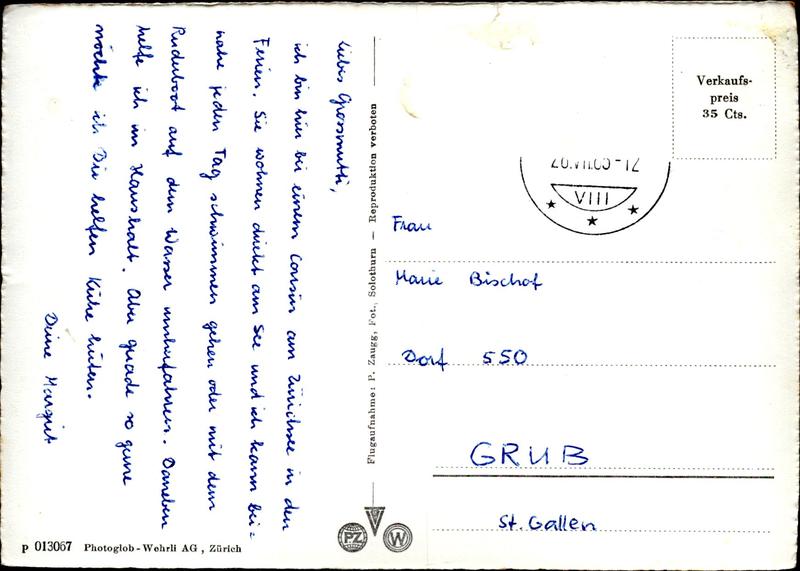 Liebis Grossmutti,
ich bin hier bei einem Cousin am Zürichsee in den
Ferien. Sie wohnen direkt am See und ich kann bei=
nahe jeden Tag schwimmen gehen oder mit dem
Ruderboot auf dem Wasser umherfahren. Daneben
helfe ich im Haushalt. Aber gerade so gerne
möchte ich Dir helfen Kühe hüten.
Deine Margrit
Flugaufnahme: P. Zaugg, Fot., Solothurn – Reproduktion verboten
Verkaufs-
preis
35 Cts.
VIII
Frau
Marie Bischof
Dorf 550
GRUB
St. Gallen
PZ
W
P 013067 Photoglob-Wehrli AG, Zürich